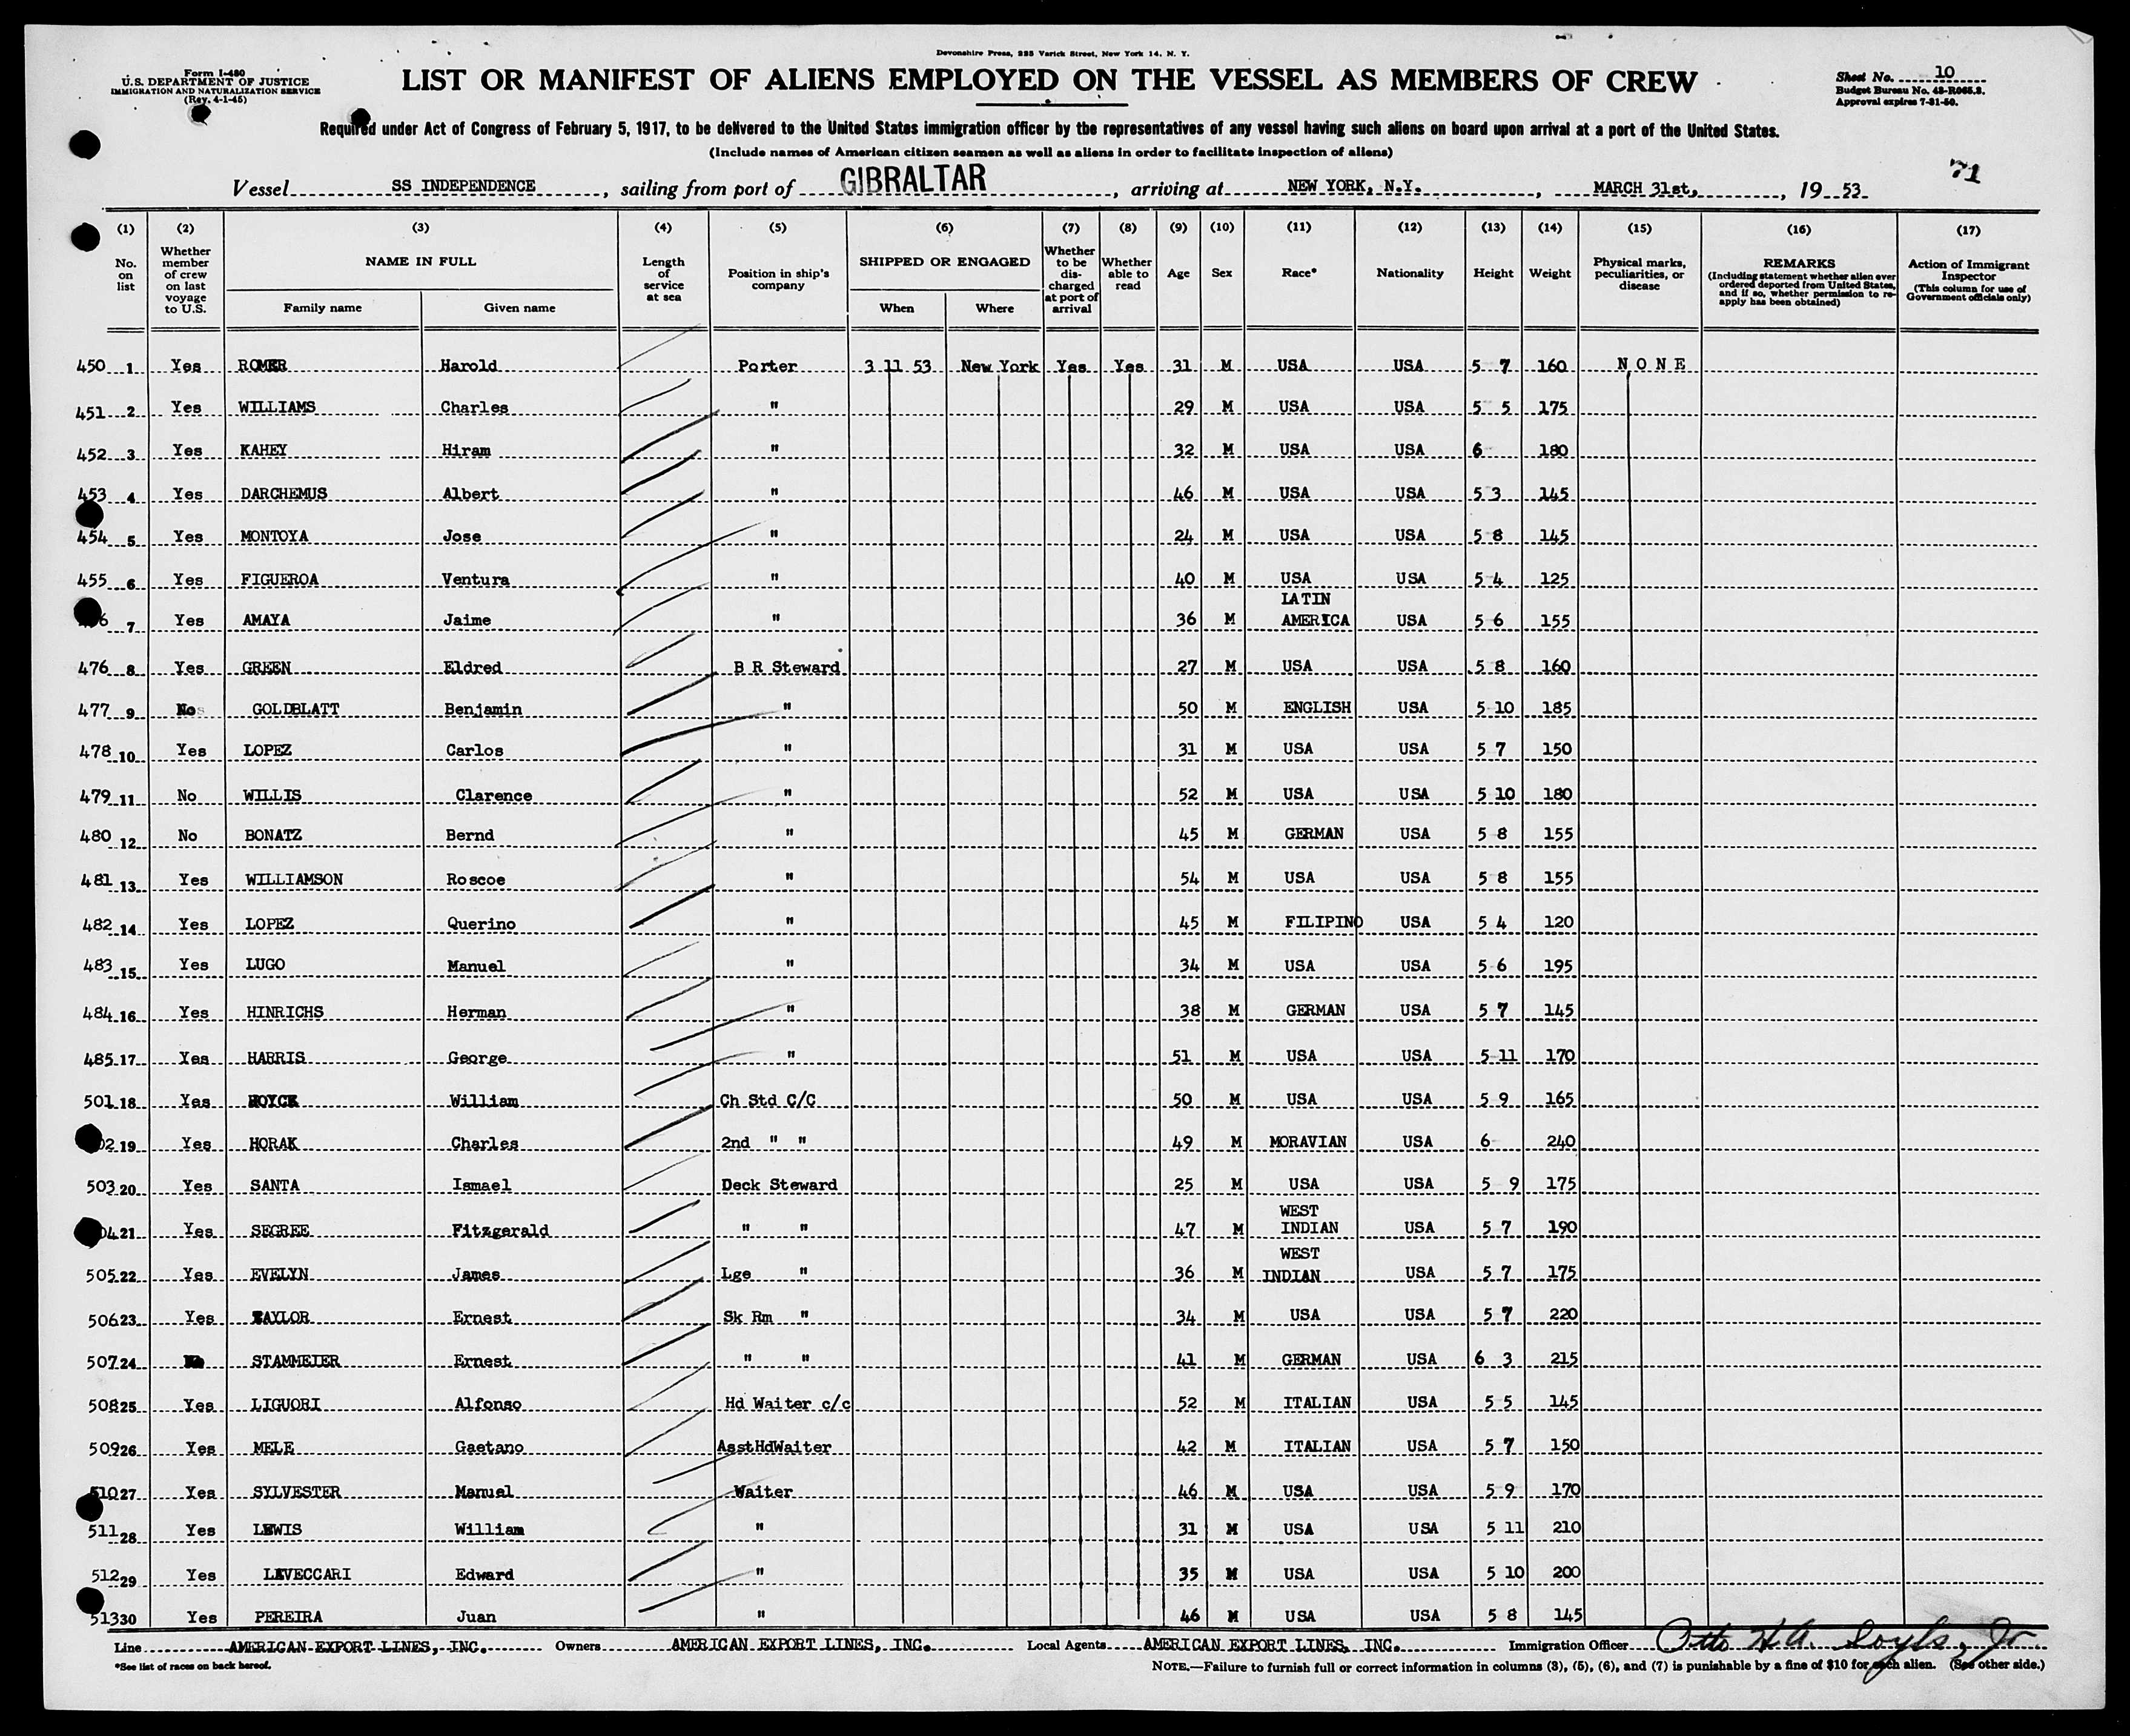 Devonshire Press, 225 Varick Street, New York 14, N. Y.
Form I-480
U.S. DEPARTMENT OF JUSTICE
IMMIGRATION AND NATURALIZATION SERVICE
(Rev. 4-1-45)
LIST OR MANIFEST OF ALIENS EMPLOYED ON THE VESSEL AS MEMBERS OF CREW
Sheet No. 10
Budget Bureau No. 43-R065.2.
Approval expires 7-31-50.
Required under Act of Congress of February 5, 1917, to be delivered to the United States immigration officer by the representatives of any vessel having such aliens on board upon arrival at a port of the United States.
(Include names of American citizen seamen as well as aliens in order to facilitate inspection of aliens)
71
Vessel SS INDEPENDENCE, sailing from port of GIBRALTAR, arriving at NEW YORK, N.Y., MARCH 31st, 1953
(1) (2) (3) (4) (5) (6) (7) (8) (9) (10) (11) (12) (13) (14) (15) (16) (17)
No. on list
Whether member of crew on last voyage to U.S.
NAME IN FULL
Family name Given name
Length of service at sea
Position in ship's company
SHIPPED OR ENGAGED
When Where
Whether to be discharged at port of arrival
Whether able to read
Age Sex Race* Nationality Height Weight
Physical marks, peculiarities, or disease
REMARKS
(Including statement whether alien ever ordered deported from United States, and if so, whether permission to re-apply has been obtained)
Action of Immigrant Inspector
(This column for use of Government officials only)
450 1 Yes ROMER Harold Porter 3 11 53 New York Yes Yes 31 M USA USA 5 7 160 NONE
451 2 Yes WILLIAMS Charles " 29 M USA USA 5 5 175
452 3 Yes KAHEY Hiram " 32 M USA USA 6 180
453 4 Yes DARCHEMUS Albert " 46 M USA USA 5 3 145
454 5 Yes MONTOYA Jose " 24 M USA USA 5 8 145
455 6 Yes FIGUEROA Ventura " 40 M USA USA 5 4 125
7 Yes AMAYA Jaime " 36 M LATIN AMERICA USA 5 6 155
476 8 Yes GREEN Eldred B R Steward 27 M USA USA 5 8 160
477 9 No GOLDBLATT Benjamin " 50 M ENGLISH USA 5 10 185
478 10 Yes LOPEZ Carlos " 31 M USA USA 5 7 150
479 11 No WILLIS Clarence " 52 M USA USA 5 10 180
480 12 No BONATZ Bernd " 45 M GERMAN USA 5 8 155
481 13 Yes WILLIAMSON Roscoe " 54 M USA USA 5 8 155
482 14 Yes LOPEZ Querino " 45 M FILIPINO USA 5 4 120
483 15 Yes LUGO Manuel " 34 M USA USA 5 6 195
484 16 Yes HINRICHS Herman " 38 M GERMAN USA 5 7 145
485 17 Yes HARRIS George " 51 M USA USA 5 11 170
501 18 Yes William Ch Std C/C 50 M USA USA 5 9 165
19 Yes HORAK Charles 2nd " " 49 M MORAVIAN USA 6 240
503 20 Yes SANTA Ismael Deck Steward 25 M USA USA 5 9 175
21 Yes SEGREE Fitzgerald " " 47 M WEST INDIAN USA 5 7 190
505 22 Yes EVELYN James Lge " 36 M WEST INDIAN USA 5 7 175
506 23 Yes TAYLOR Ernest Sk Rm " 34 M USA USA 5 7 220
507 24 STAMMEIER Ernest " " 41 M GERMAN USA 6 3 215
508 25 Yes LIGUORI Alfonso Hd Waiter c/c 52 M ITALIAN USA 5 5 145
509 26 Yes MELE Gaetano AsstHdWaiter 42 M ITALIAN USA 5 7 150
510 27 Yes SYLVESTER Manuel Waiter 46 M USA USA 5 9 170
511 28 Yes LEWIS William " 31 M USA USA 5 11 210
512 29 Yes LAVECCARI Edward " 35 M USA USA 5 10 200
513 30 Yes PEREIRA Juan " 46 M USA USA 5 8 145
Line AMERICAN EXPORT LINES, INC. Owners AMERICAN EXPORT LINES, INC. Local Agents AMERICAN EXPORT LINES, INC. Immigration Officer Otto H.A. Jr.
*See list of races on back hereof.
NOTE.—Failure to furnish full or correct information in columns (3), (5), (6), and (7) is punishable by a fine of $10 for each alien. (See other side.)